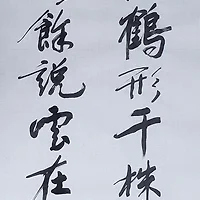 鶴形千株
餘說雲在